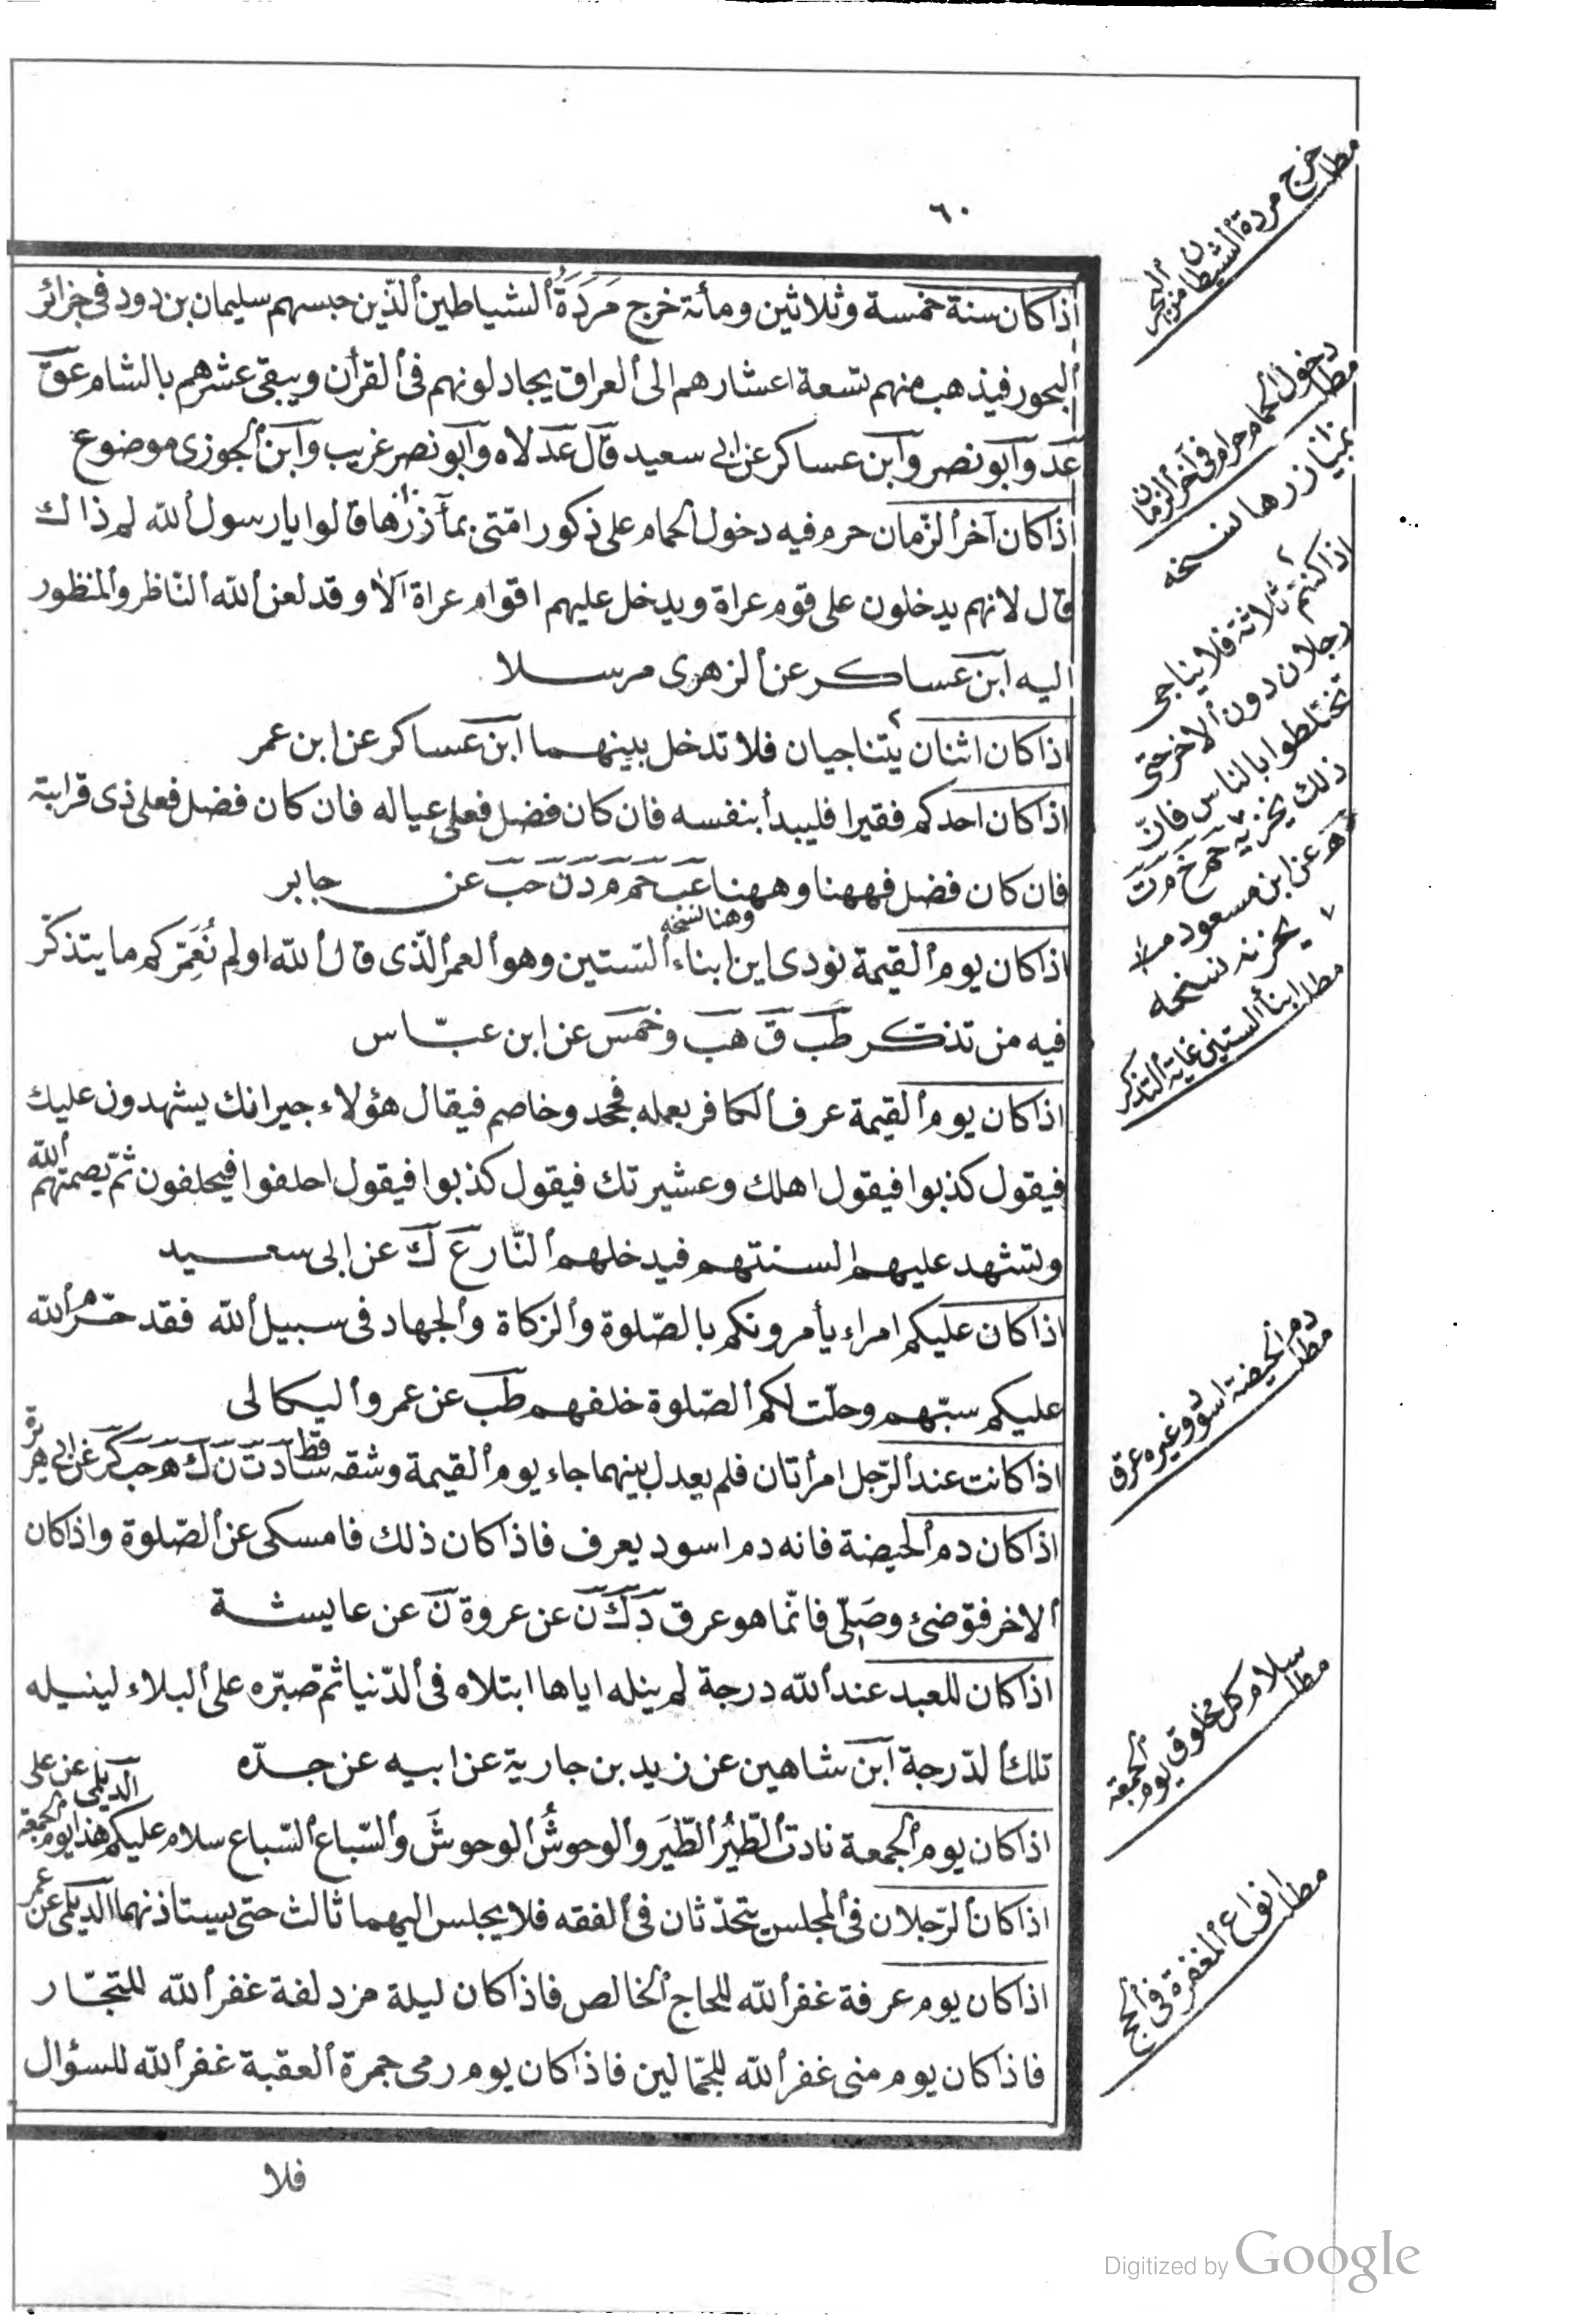 ٦٠
اذا كان سنة خمسة وثلاثين ومأتة خرج مَرَدَةُ الشياطين الذين حبسهم سليمان بن دود فى جزائر
البحور فيذهب منهم تسعة اعشارهم الى العراق يجادلونهم فى القرأن ويبقى عشرهم بالشام عق
عد وابو نصر وابن عساكر عن ابى سعيد قال عد لاه وابو نصر غريب وابن الجوزى موضوع
اذا كان آخر الزمان حرم فيه دخول الحمام على ذكور امّتى بمآزرها قالوا يا رسول الله لم ذاك
قال لانهم يدخلون على قوم عراة ويدخل عليهم اقوام عراة الا وقد لعن الله النّاظر والمنظور
اليه ابن عساكر عن الزهرى مرسلا
اذا كان اثنان يتناجيان فلا تدخل بينهما ابن عساكر عن ابن عمر
اذا كان احدكم فقيرا فليبدأ بنفسه فان كان فضل فعلى عياله فان كان فضل فعلى ذى قرابته
فان كان فضل فههنا وههنا عب حم م د ن حب عن جابر
وهنا نسخه
اذا كان يوم القيمة نودى اين ابناء الستين وهو العمر الّذى قال الله اولم نُعَمِّركم ما يتذكّر
فيه من تذكّر طب ق هب وخمس عن ابن عبّاس
اذا كان يوم القيمة عرف الكافر بعمله فجحد وخاصم فيقال هؤلاء جيرانك يشهدون عليك
فيقول كذبوا فيقول اهلك وعشيرتك فيقول كذبوا فيقول احلفوا فيحلفون ثمّ يصمتهم الله
وتشهد عليهم السنتهم فيدخلهم النّار ع ك عن ابى سعيد
اذا كان عليكم امراء يأمرونكم بالصّلوة والزكاة والجهاد فى سبيل الله فقد حرّم الله
عليكم سبّهم وحلّت لكم الصّلوة خلفهم طب عن عمرو البكالى
اذا كانت عند الرّجل امرأتان فلم يعدل بينهما جاء يوم القيمة وشقه ساقط د ت ن ك ه حب كر عن ابى هريرة
اذا كان دم الحيضة فانه دم اسود يعرف فاذا كان ذلك فامسكى عن الصّلوة واذا كان
الاخر فتوضئ وصَلّى فانّما هو عرق د ك ن عن عروة ن عن عايشة
اذا كان للعبد عند الله درجة لم ينله اياها ابتلاه فى الدّنيا ثمّ صبّره على البلاء لينيله
تلك الدّرجة ابن شاهين عن زيد بن جارية عن ابيه عن جدّه
اذا كان يوم الجمعة نادت الطّيرُ الطّيرَ والوحوشُ الوحوشَ والسّباع السّباع سلام عليكم هذا يوم الجمعة الديلمى عن على
اذا كان الرّجلان فى المجلس يتحدّثان فى الفقه فلا يجلس اليهما ثالث حتى يستاذنهما الديلمى عن عمر
اذا كان يوم عرفة غفر الله للحاج الخالص فاذا كان ليلة مزدلفة غفر الله للتجّار
فاذا كان يوم منى غفر الله للجمّالين فاذا كان يوم رمى جمرة العقبة غفر الله للسؤال
فلا
مطلب خرج مردة الشيطان من البحر
مطلب دخول الحمام حرام فى آخر الزمان
نسخه
اذا كنتم ثلاثة فلا يناجى
رجلان دون الاخر حتى
تختلطوا بالناس فانّ
ذلك يحزنه حم خ م ت
ه عن ابن مسعود
يحزنه نسخه
مطلب ابنأ الستين غاية التذكر
مطلب دم الحيضة اسود وغيره عرق
مطلب سلام كل مخلوق يوم الجمعة
مطلب انواع المغفرة فى الحج
Digitized by Google